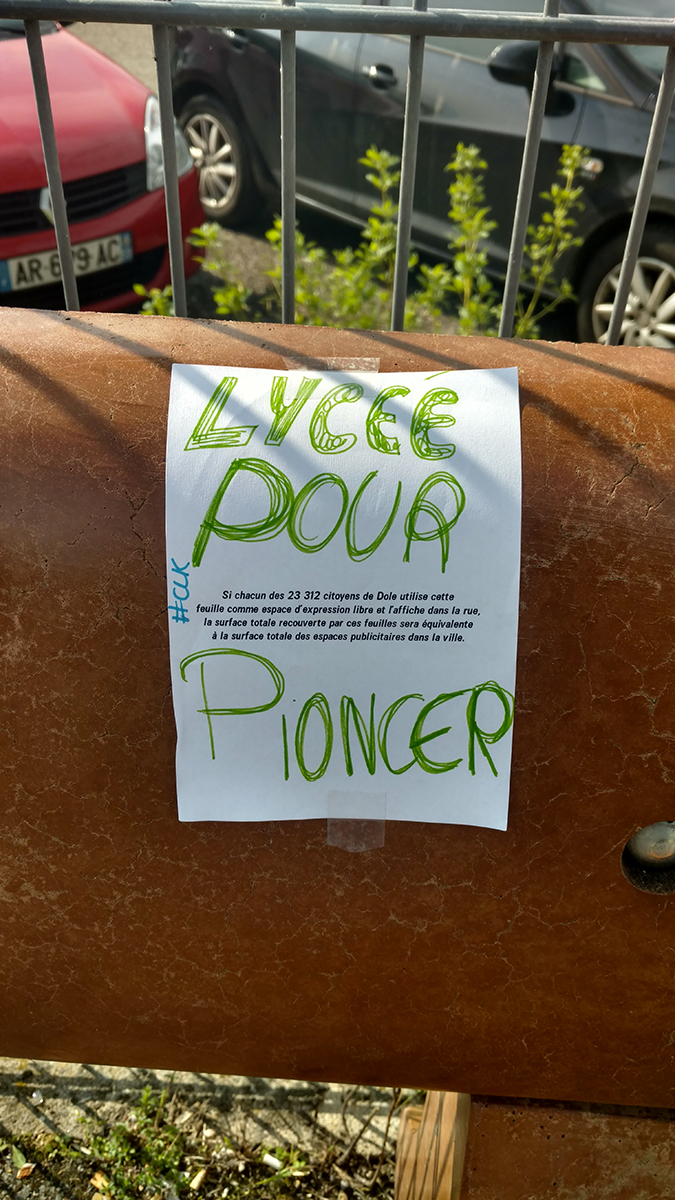 LYCÉE
POUR
#CLK
Si chacun des 23 312 citoyens de Dole utilise cette
feuille comme espace d'expression libre et l'affiche dans la rue,
la surface totale recouverte par ces feuilles sera équivalente
à la surface totale des espaces publicitaires dans la ville.
PiONCER